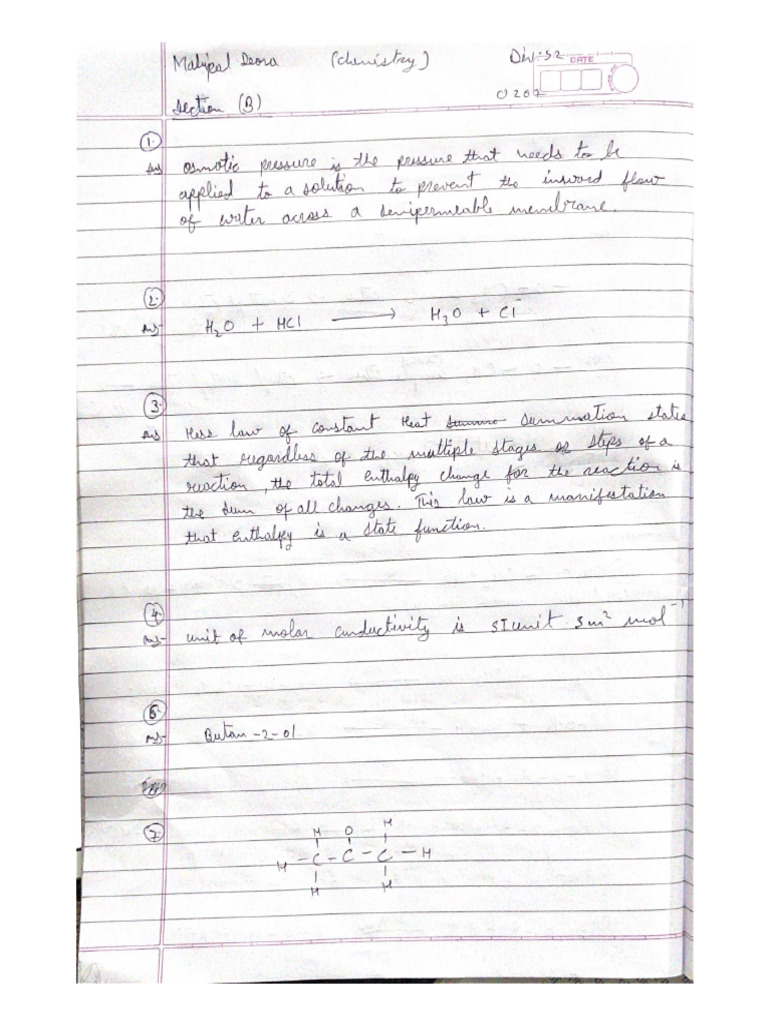 Mahipal Deora (Chemistry) Div:-S2
DATE
0207
Section (B)
1.
Ans osmotic pressure is the pressure that needs to be
applied to a solution to prevent the inword flow
of water across a semipermeable membrane.
2.
Ans- H2O + HCl ⟶ H3O + Cl⁻
3.
Ans Hess law of constant Heat summation states
that regardless of the multiple stages or steps of a
reaction, the total enthalpy change for the reaction is
the sum of all changes. This law is a manifestation
that enthalpy is a state function.
4.
Ans- unit of molar conductivity is SI unit Sm² mol⁻¹
5.
Ans- Butan-2-ol
7.
H O H
H - C - C - C - H
H H